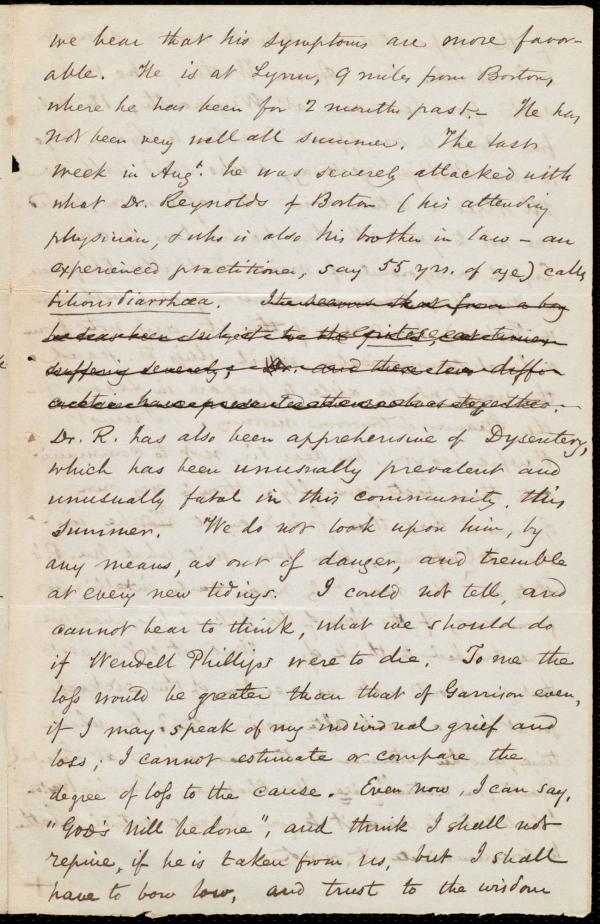 we hear that his symptoms are more favor-
able. He is at Lynn, 9 miles from Boston,
where he has been for 2 months past. – He has
not been very well all summer. The last
week in Augt. he was severely attacked with
what Dr. Reynolds of Boston (his attending
physician, & who is also his brother in law – an
experienced practitioner, say 55 yrs. of age) calls
bilious diarrhœa. It seems that from a boy
he has been subject to the piles, at times
suffering severely; and these two diffi-
culties have presented themselves together.
Dr. R. has also been apprehensive of Dysentery,
which has been unusually prevalent and
unusually fatal in this community, this
summer. We do not look upon him, by
any means, as out of danger, and tremble
at every new tidings. I could not tell, and
cannot bear to think, what we should do
if Wendell Phillips were to die. To me the
loss would be greater than that of Garrison even,
if I may speak of my individual grief and
loss; I cannot estimate or compare the
degree of loss to the cause. Even now, I can say,
"God's will be done", and think I shall not
repine, if he is taken from us, but I shall
have to bow low, and trust to the wisdom